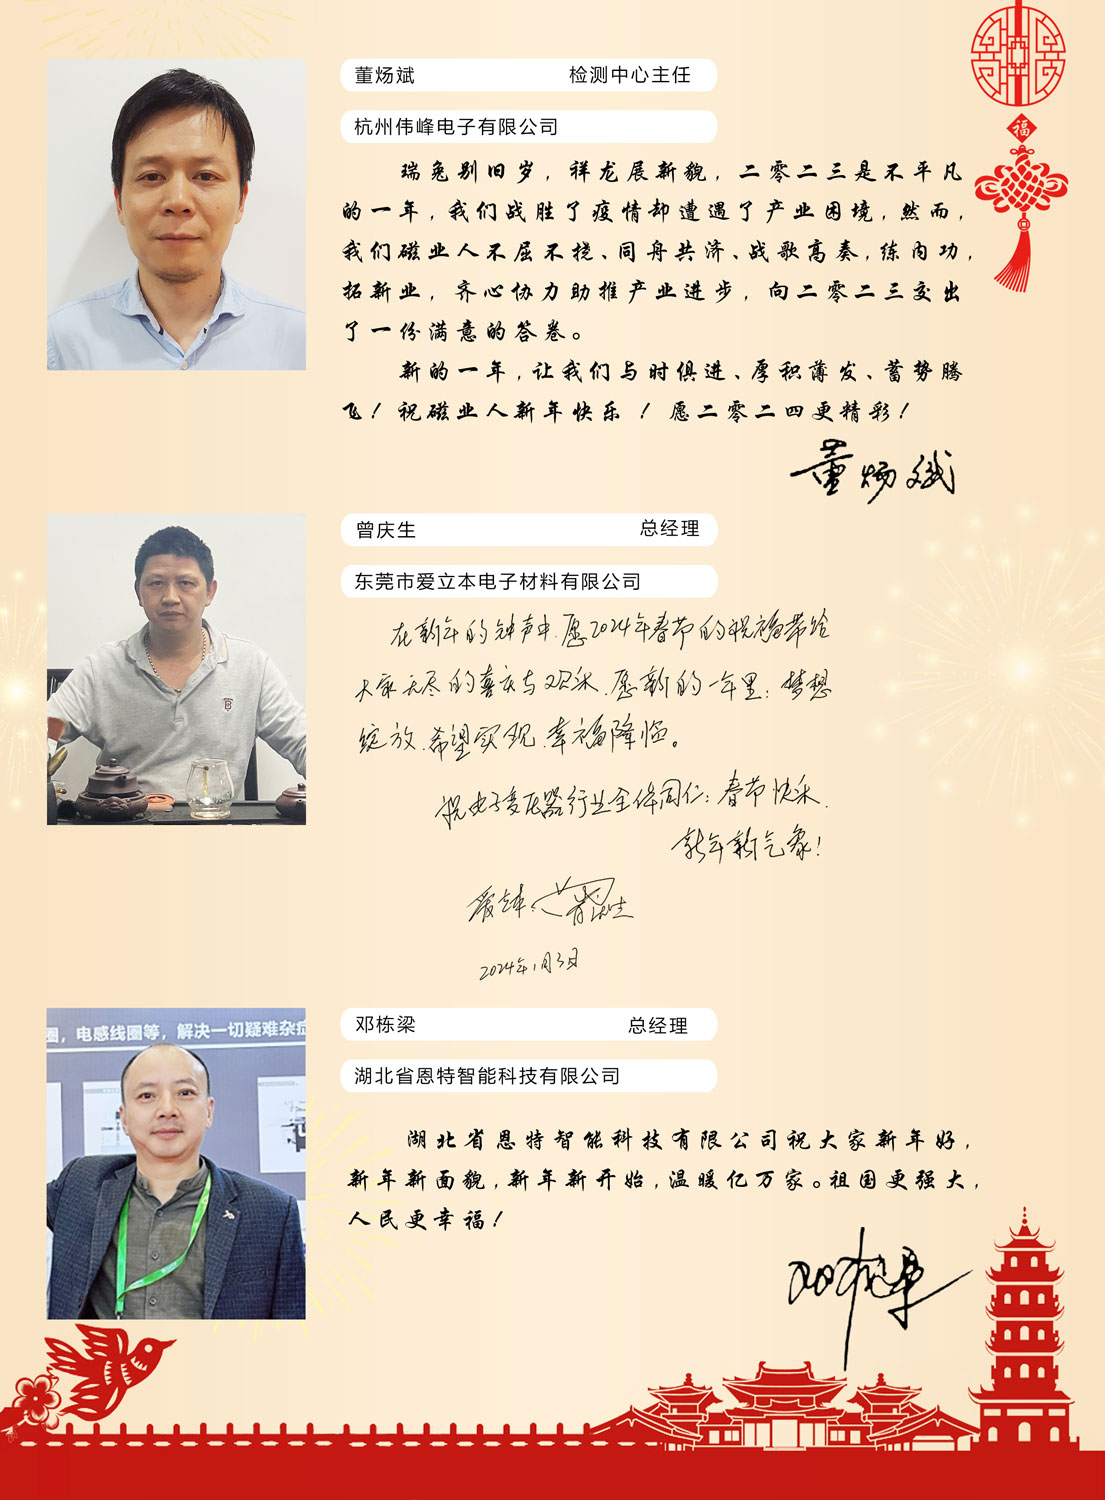 福
董炀斌 检测中心主任
杭州伟峰电子有限公司
瑞兔别旧岁，祥龙展新貌，二零二三是不平凡
的一年，我们战胜了疫情却遭遇了产业困境，然而，
我们磁业人不屈不挠、同舟共济、战歌高奏，练内功，
拓新业，齐心协力助推产业进步，向二零二三交出
了一份满意的答卷。
新的一年，让我们与时俱进、厚积薄发、蓄势腾
飞！祝磁业人新年快乐！愿二零二四更精彩！
董炀斌
曾庆生 总经理
东莞市爱立本电子材料有限公司
在新年的钟声中，愿2024年春节的祝福带给
大家无尽的喜庆与欢乐，愿新的一年里：梦想
绽放、希望实现、幸福降临。
祝电子变压器行业全体同仁：春节快乐，
新年新气象！
爱立本：曾庆生
2024年1月3日
圈，电感线圈等，解决一切疑难杂症
邓栋梁 总经理
湖北省恩特智能科技有限公司
湖北省恩特智能科技有限公司祝大家新年好，
新年新面貌，新年新开始，温暖亿万家。祖国更强大，
人民更幸福！
邓栋梁